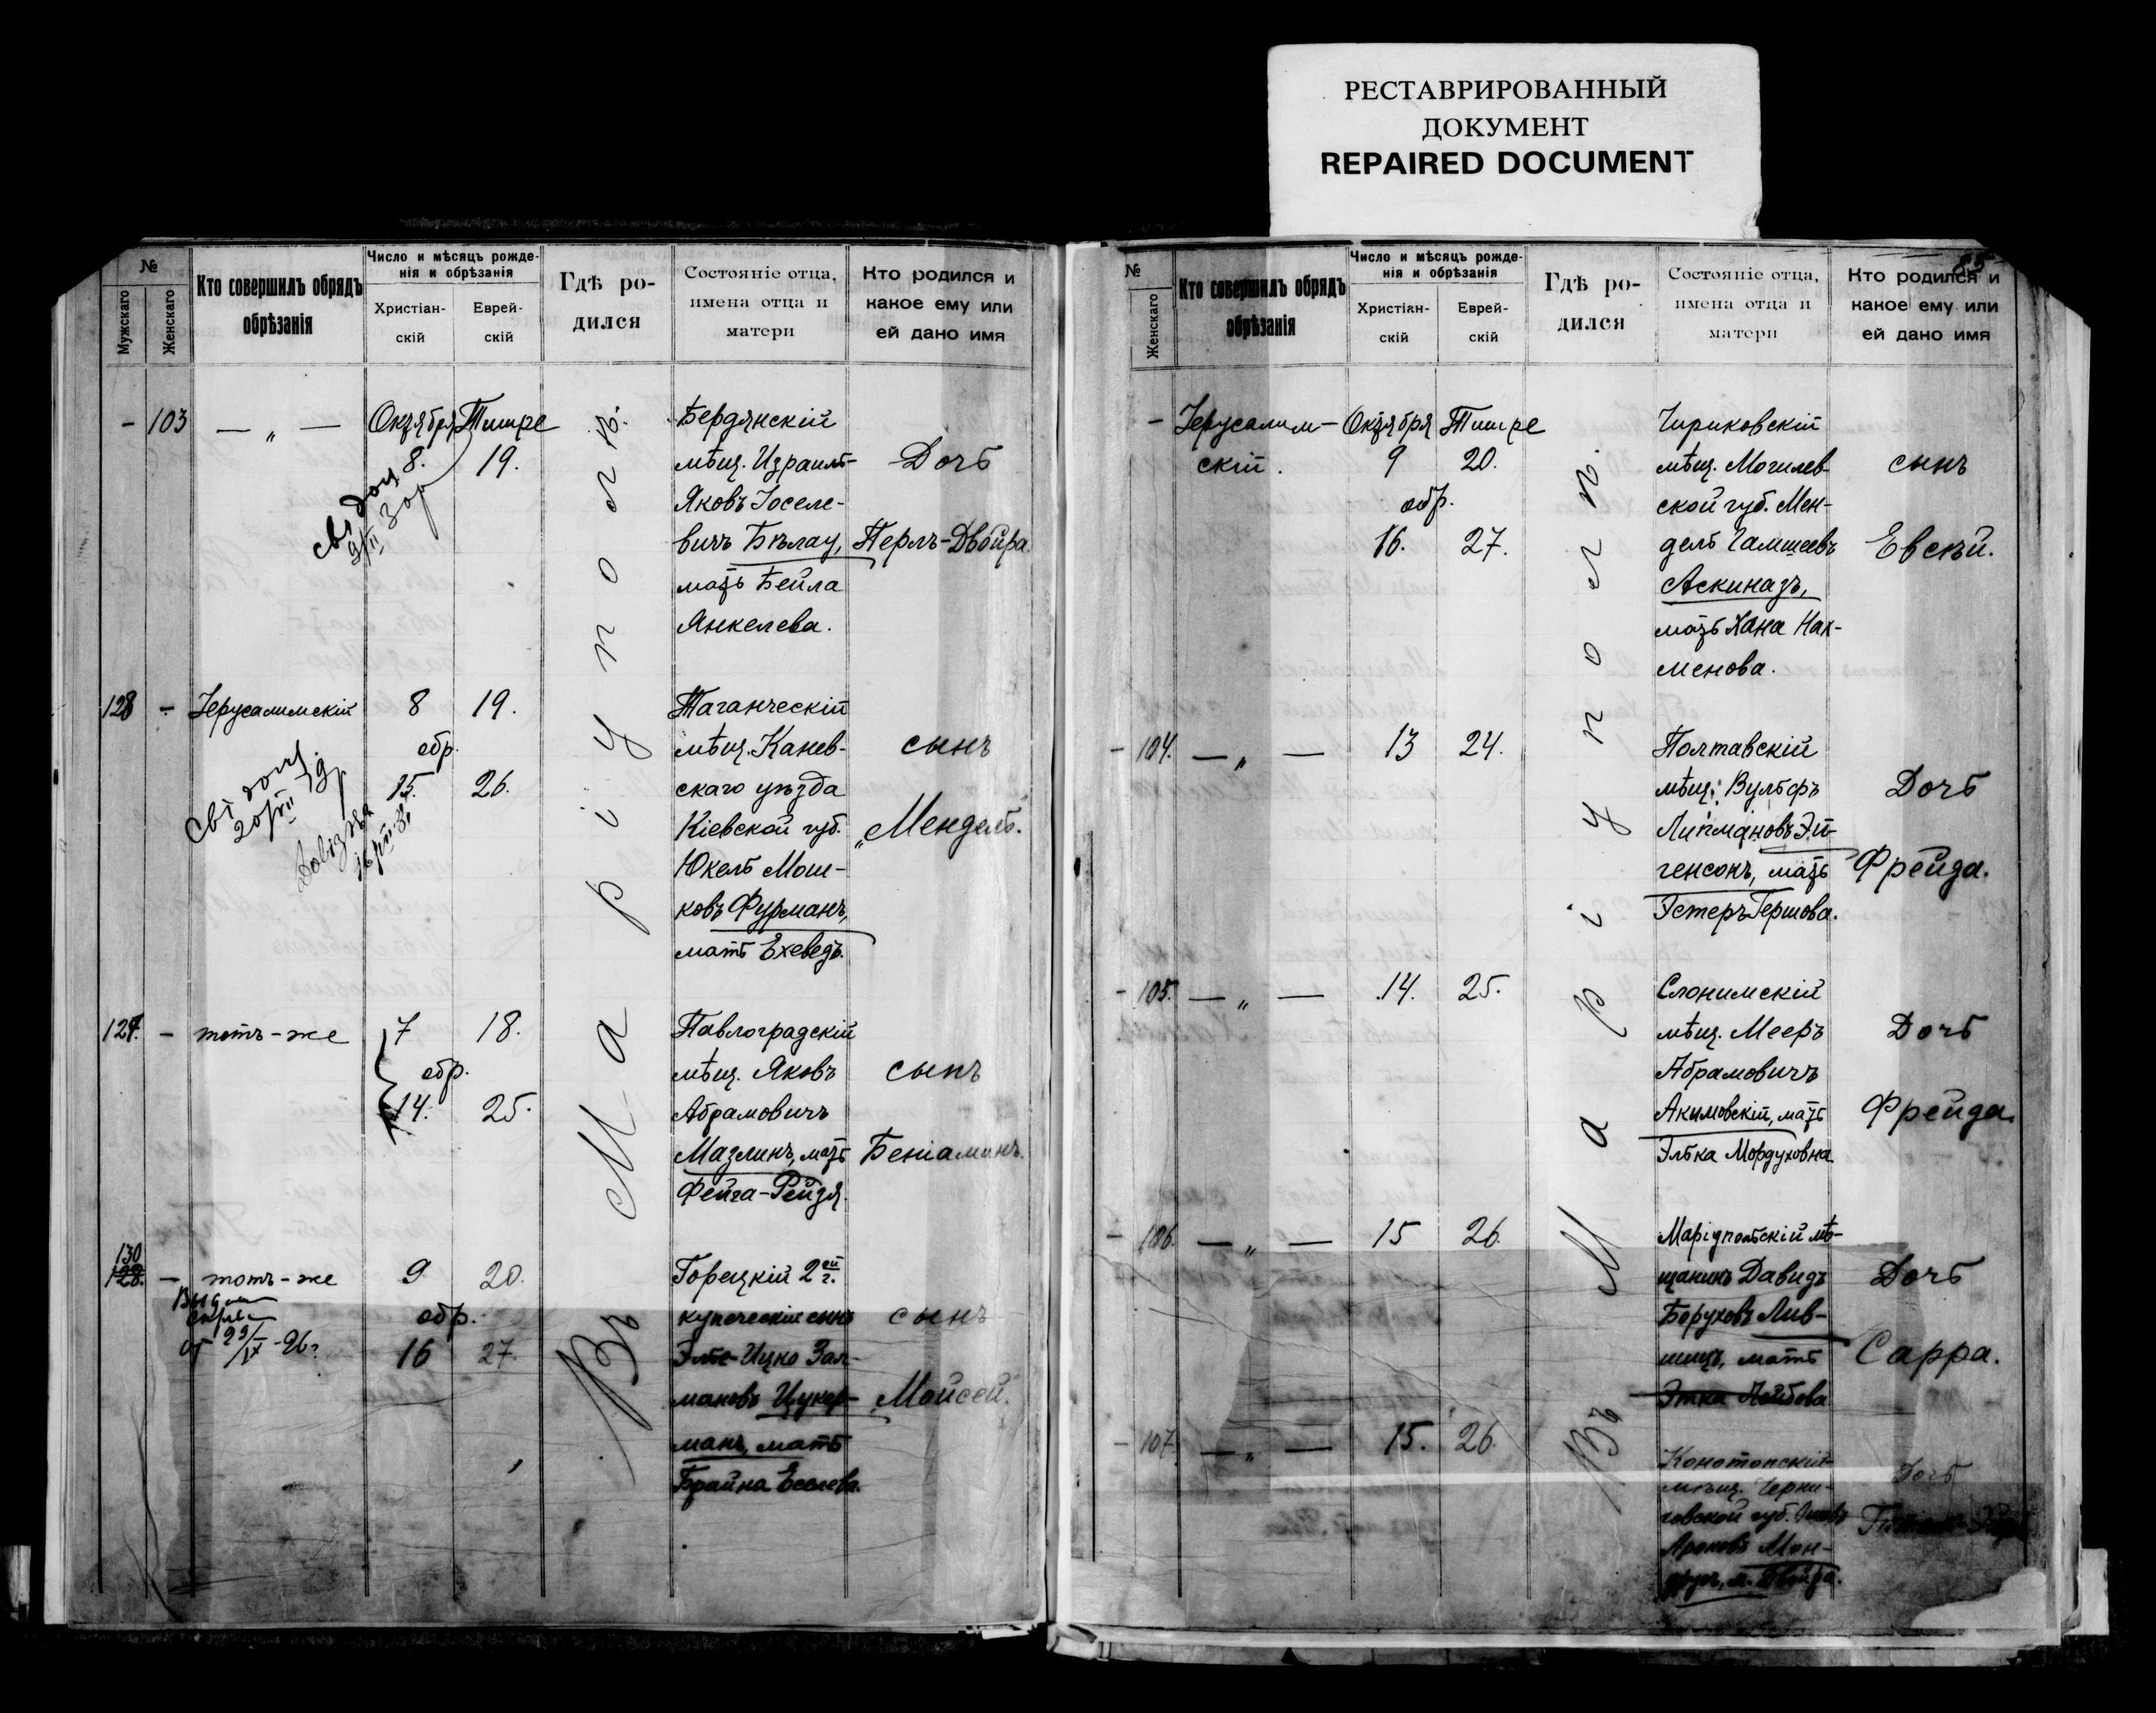 РЕСТАВРИРОВАННЫЙ
ДОКУМЕНТ
REPAIRED DOCUMENT
№
Мужскаго
Женскаго
Кто совершилъ обрядъ
обрѣзанія
Число и мѣсяцъ рожде-
нія и обрѣзанія
Христіан-
скій
Еврей-
скій
Гдѣ ро-
дился
Состояніе отца,
имена отца и
матери
Кто родился и
какое ему или
ей дано имя
Въ Маріуполѣ.
- 103 — „ — Октября Тишре
8. 19.
Бердянскій
мѣщ. Израиль-
Яковъ Іоселе-
вичъ Бѣлау,
мать Бейла
Янкелева.
Дочь
Перлъ-Двойра
128 - Іерусалимскій 8 19.
обр.
15. 26.
Таганческій
мѣщ. Канев-
скаго уѣзда
Кіевской губ.
Юкель Мош-
ковъ Фурманъ,
мать Ехеведъ.
сынъ
„Мендель.
129. - тотъ-же 7 18.
обр.
14. 25.
Павлоградскій
мѣщ. Яковъ
Абрамовичъ
Мазлинъ, мать
Фейга-Рейзя.
сынъ
Беніаминъ.
130
128. - тотъ-же 9 20.
обр.
16 27.
Горецкій 2 ой г.
купеческій сынъ
Ицко Зал-
мановъ Цукер-
манъ, мать
Брайна
сынъ
Мойсей.
85
№
Женскаго
Кто совершилъ обрядъ
обрѣзанія
Число и мѣсяцъ рожде-
нія и обрѣзанія
Христіан-
скій
Еврей-
скій
Гдѣ ро-
дился
Состояніе отца,
имена отца и
матери
Кто родился и
какое ему или
ей дано имя
Въ Маріуполѣ.
- Іерусалим- Октября Тишре
скій. 9 20.
обр.
16. 27.
Чириковскій
мѣщ. Могилев-
ской губ. Мен-
дель Гамшеевъ
Аскиназъ,
мать Хана Нах-
менова.
сынъ
Евсѣй.
- 104. — „ — 13 24.
Полтавскій
мѣщ. Вульфъ
Липмановъ Эй-
генсонъ, мать
Эстеръ Гершова.
Дочь
Фрейда.
- 105. — „ — 14. 25.
Слонимскій
мѣщ. Мееръ
Абрамовичъ
Акимовскій, мать
Элька Мордуховна
Дочь
Фрейда.
- 106. — „ — 15 26.
Маріупольскій мѣ-
щанинъ Давидъ
Боруховъ Лив-
шицъ, мать
Этка Лейбова
Дочь
Сарра.
- 107. — „ — 15. 26.
Конотопскій
мѣщ. Черни-
говской губ.
Ароновъ Мон-
Дочь